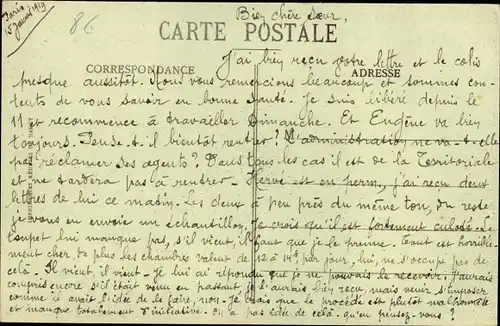 Paris
15 Janvier 1919
86
Bien chère Sœur,
CARTE POSTALE
J'ai bien reçu votre lettre et le colis
CORRESPONDANCE
ADRESSE
presque aussitôt. Nous vous remercions beaucoup et sommes con-
tents de vous savoir en bonne santé. Je suis libéré depuis le
11 et recommence à travailler Dimanche. Et Eugène va bien
toujours. Pense-t-il bientôt rentrer? L'administration ne va-t-elle
pas réclamer ses agents? Dans tous les cas il est de la Territoriale
et ne tardera pas à rentrer. Hervé est en perm, j'ai reçu deux
lettres de lui ce matin. Les deux à peu près du même ton, du reste
je vous en envoie un échantillon. Je crois qu'il est fortement culoté. Le
toupet lui manque pas, s'il vient, il faut que je le prenne. Tout est horrible-
ment cher, de plus les chambres valent de 12 à 14f par jour, lui, ne s'occupe pas de
celà. Il vient, il vient. Je lui ai répondu que je ne pouvais le recevoir. J'aurais
compris encore s'il était venu en passant, je l'aurais bien reçu, mais venir s'imposer
comme il avait l'idée de le faire, non. Je trouve que le procédé est plutôt malhonnête
et manque totalement d'initiative. On a pas idée de celà. qu'en pensez-vous?